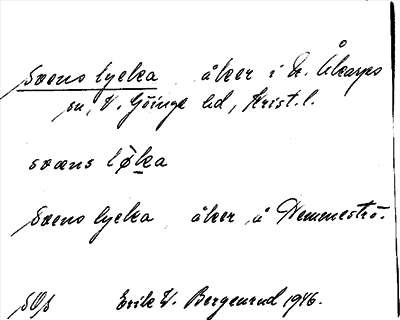 Svens lycka åker i N. Åkarps
sn, V. Göinge hd, Krist. l.
svæns løka
Svens lycka åker å Nemmeströ.
Erik V. Bergenrud 1946.